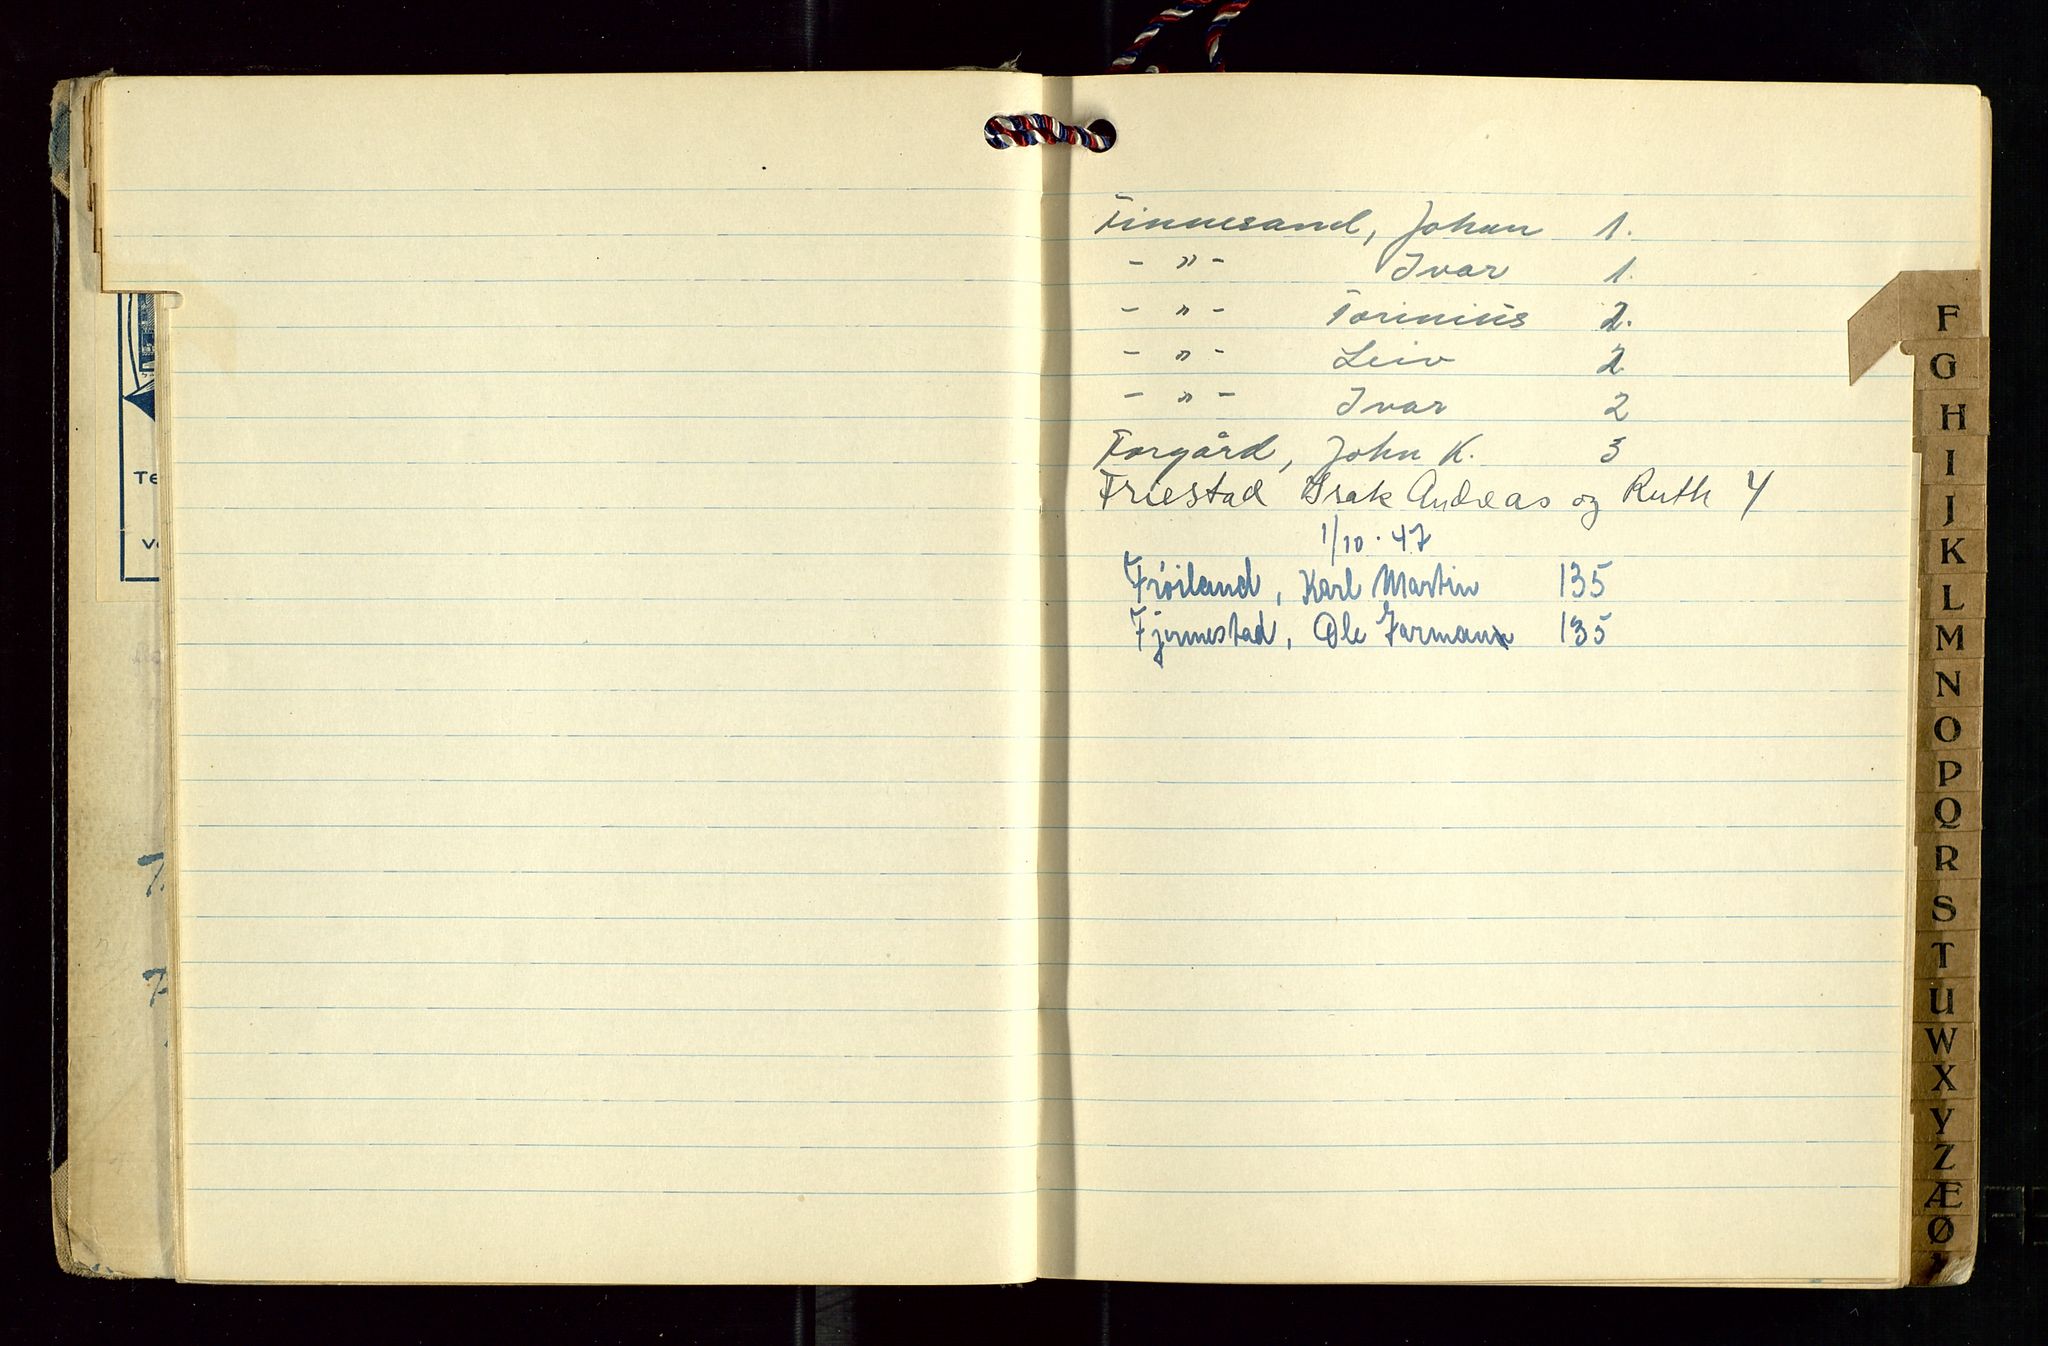 Te
V
7.
7
Finnesand, Johan 1.
- " - Ivar 1.
- " - Torinius 2.
- " - Leiv 2.
- " - Ivar 2
Forgård, John K. 3
Friestad Isak Andreas og Ruth 4
1/10.47
Frøiland, Karl Martin 135
Fjermestad, Ole Garmann 135
F
G
H
I
J
K
L
M
N
O
P
Q
R
S
T
U
W
X
Y
Z
Æ
Ø